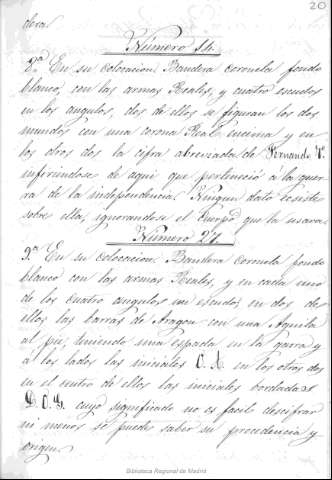 20
dera.
Número 14.
8.ª En su colocacion Bandera Coronela fondo
blanco, con las armas Reales, y cuatro escudos
en los angulos, dos de ellos se figuran los dos
mundos con una corona Real encima y en
los otros dos la cifra abreviada de Fernando 7º
infiriendose de aqui que perteneció á la guer
ra de la independencia. Ningun dato existe
sobre ella, ignorandose el Cuerpo que la usara.
Número 27.
9.ª En su colocacion Bandera Coronela fondo
blanco con las armas Reales, y en cada uno
de los cuatro angulos un escudo, en dos de
ellos las barras de Aragon con una Aguila
al pie, teniendo una espada en la garra y
á los lados las iniciales O. A. en los otros dos
en el centro de ellos las iniciales bordadas
D. O. L. cuyo significado no es facil descifrar
ni menos se puede saber su procedencia y
origen.
Biblioteca Regional de Madrid